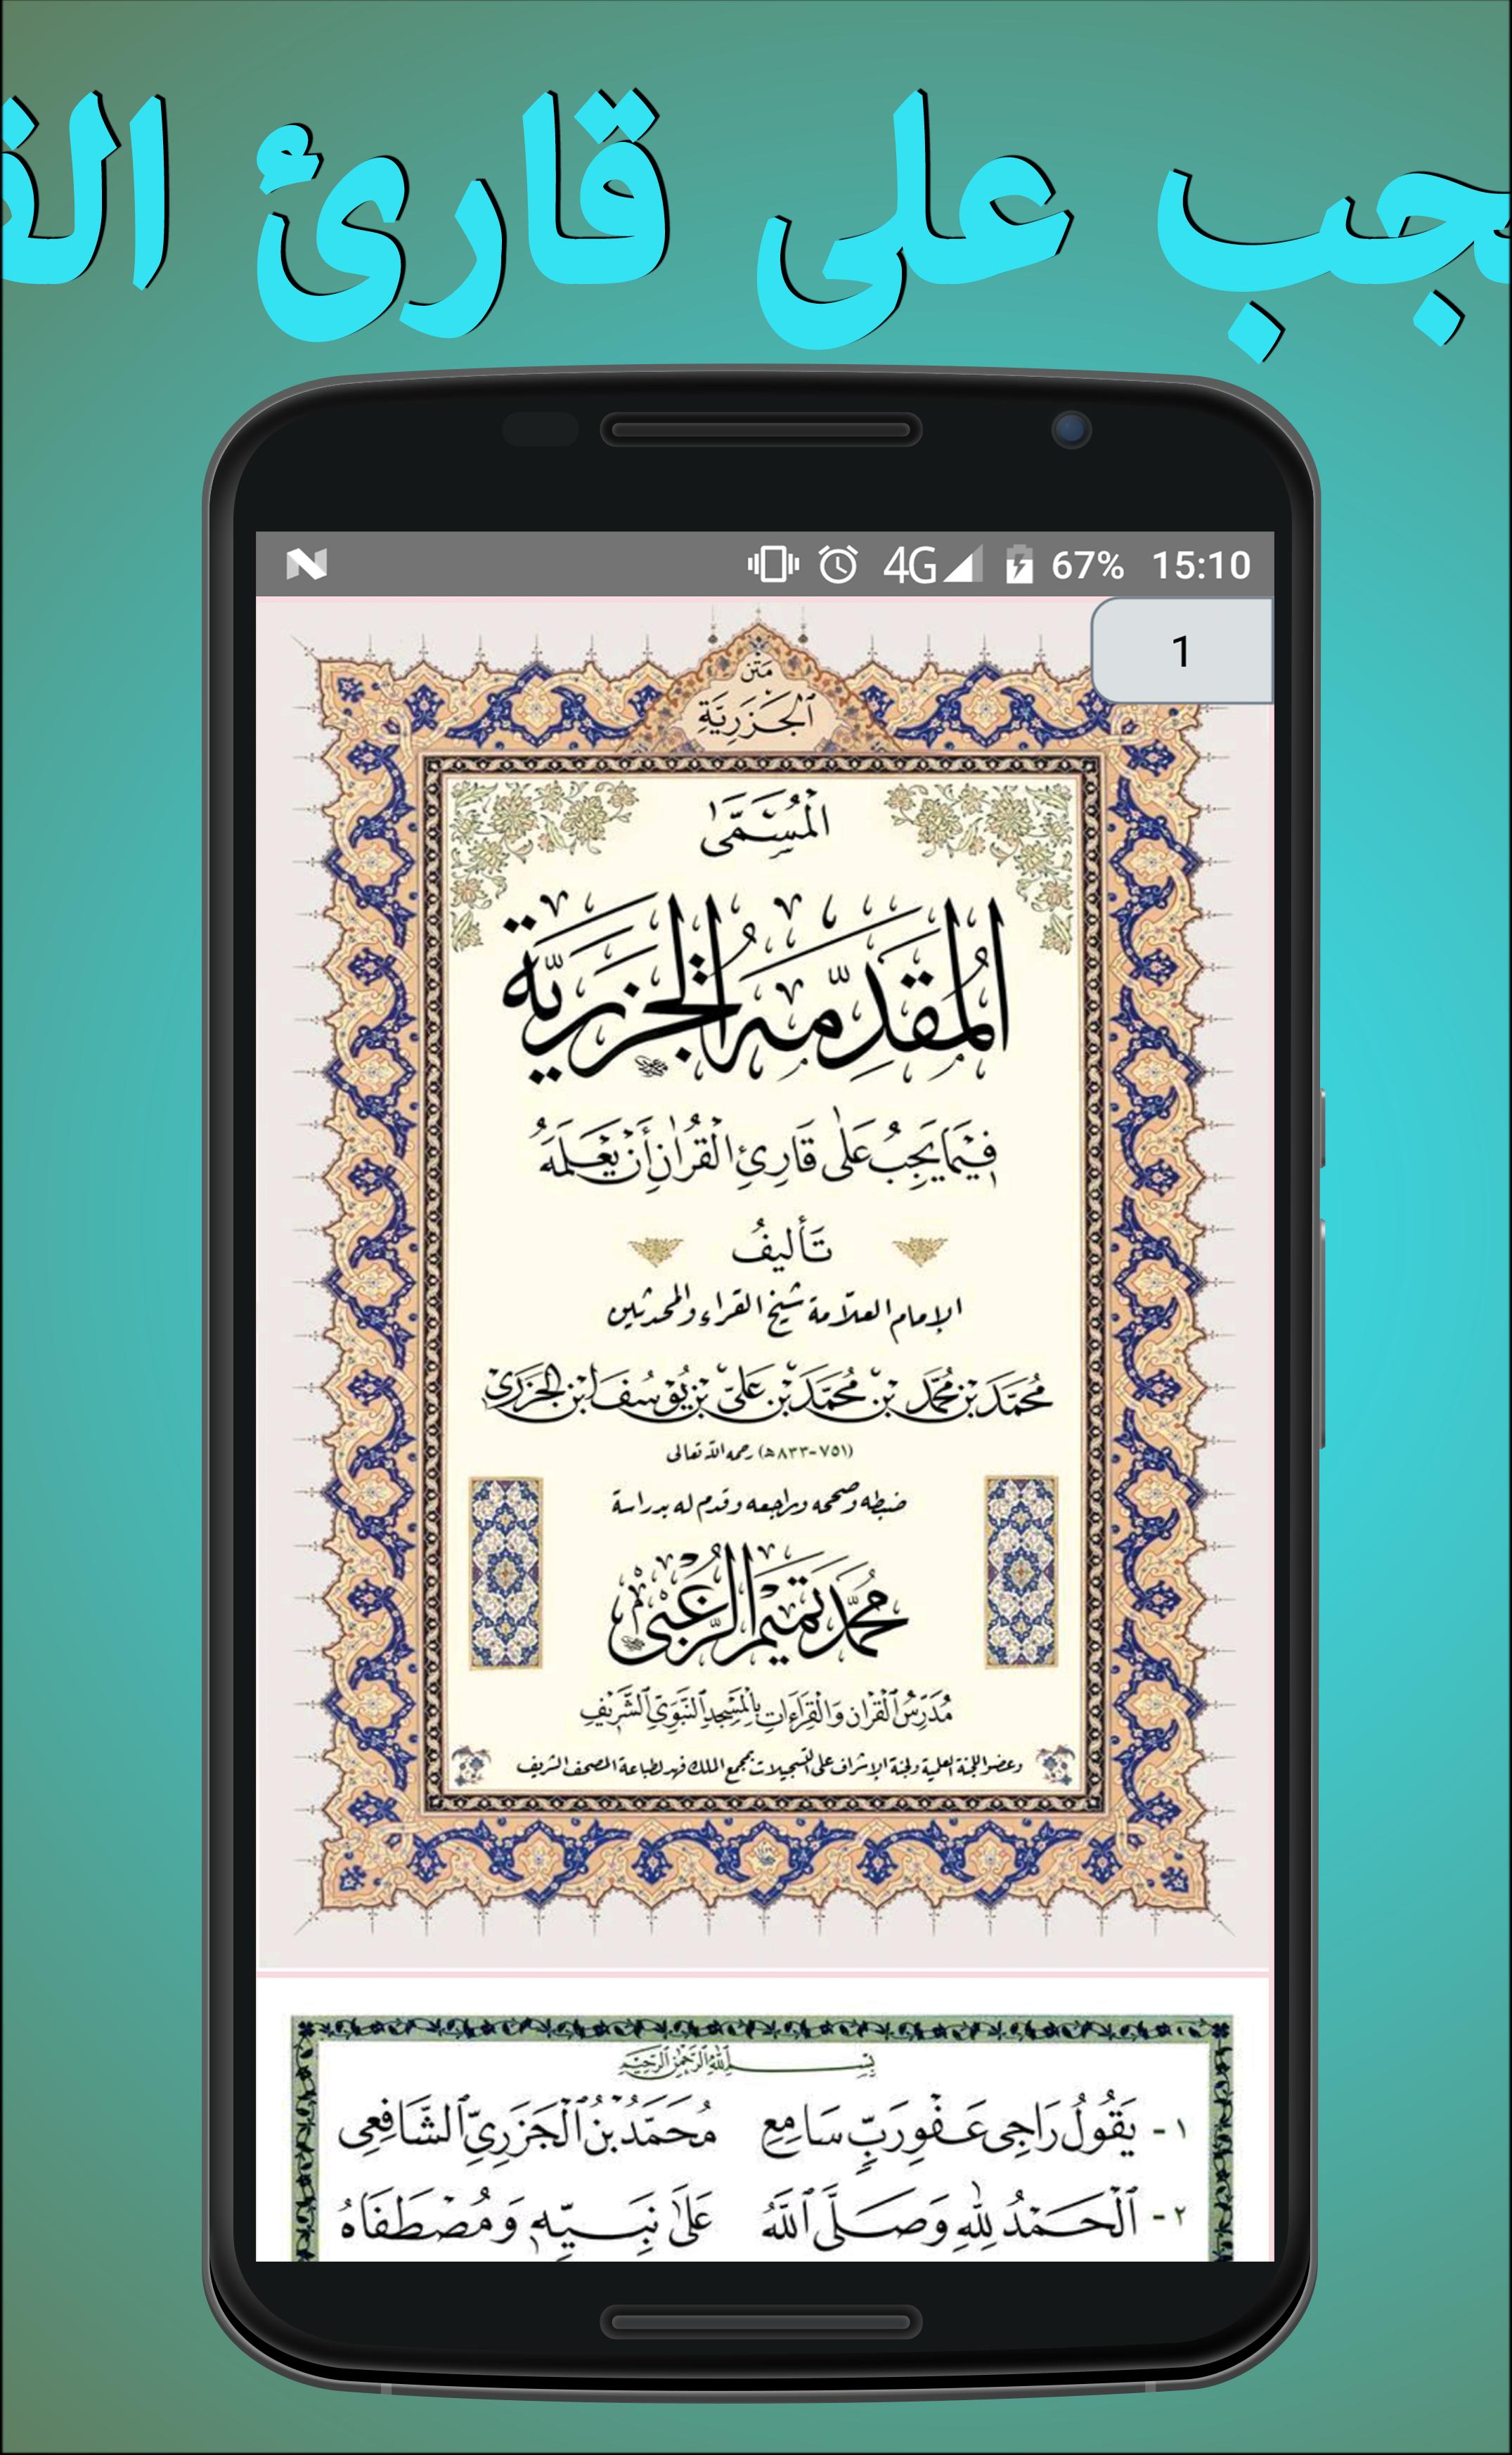 يجب على قارئ الق
4G 67% 15:10
1
مَتْن
ٱلْجَزَرِيَّةِ
المُسَمَّى
المُقَدِّمَةُ الجَزَرِيَّة
فِيمَا يَجِبُ عَلَى قَارِئِ الْقُرْآنِ أَنْ يَعْلَمَهُ
تَأليفُ
الإمام العلّامة شيخ القراء والمحدثين
مُحَمَّد بْن مُحَمَّد بْن مُحَمَّد بْن عَلِيّ بْن يُوسُف ابْن الجَزَرِيّ
(٧٥١-٨٣٣هـ) رحمه الله تعالى
ضبطه وصححه وراجعه وقدم له بدراسة
محمد تميم الزعبي
مُدَرِّسُ ٱلْقُرْآن وَالْقِرَاءَاتِ بِالْمَسْجِدِ ٱلنَّبَوِيِّ ٱلشَّرِيفِ
وعضو اللجنة العلمية ولجنة الإشراف على التسجيلات بمجمع الملك فهد لطباعة المصحف الشريف
بِسْمِ ٱللَّهِ ٱلرَّحْمَٰنِ ٱلرَّحِيمِ
١- يَقُولُ رَاجِي عَفْوِ رَبٍّ سَامِعِ مُحَمَّدُ بْنُ ٱلْجَزَرِيِّ ٱلشَّافِعِي
٢- ٱلْحَمْدُ لِلَّهِ وَصَلَّى ٱللَّهُ عَلَى نَبِيِّهِ وَمُصْطَفَاهُ